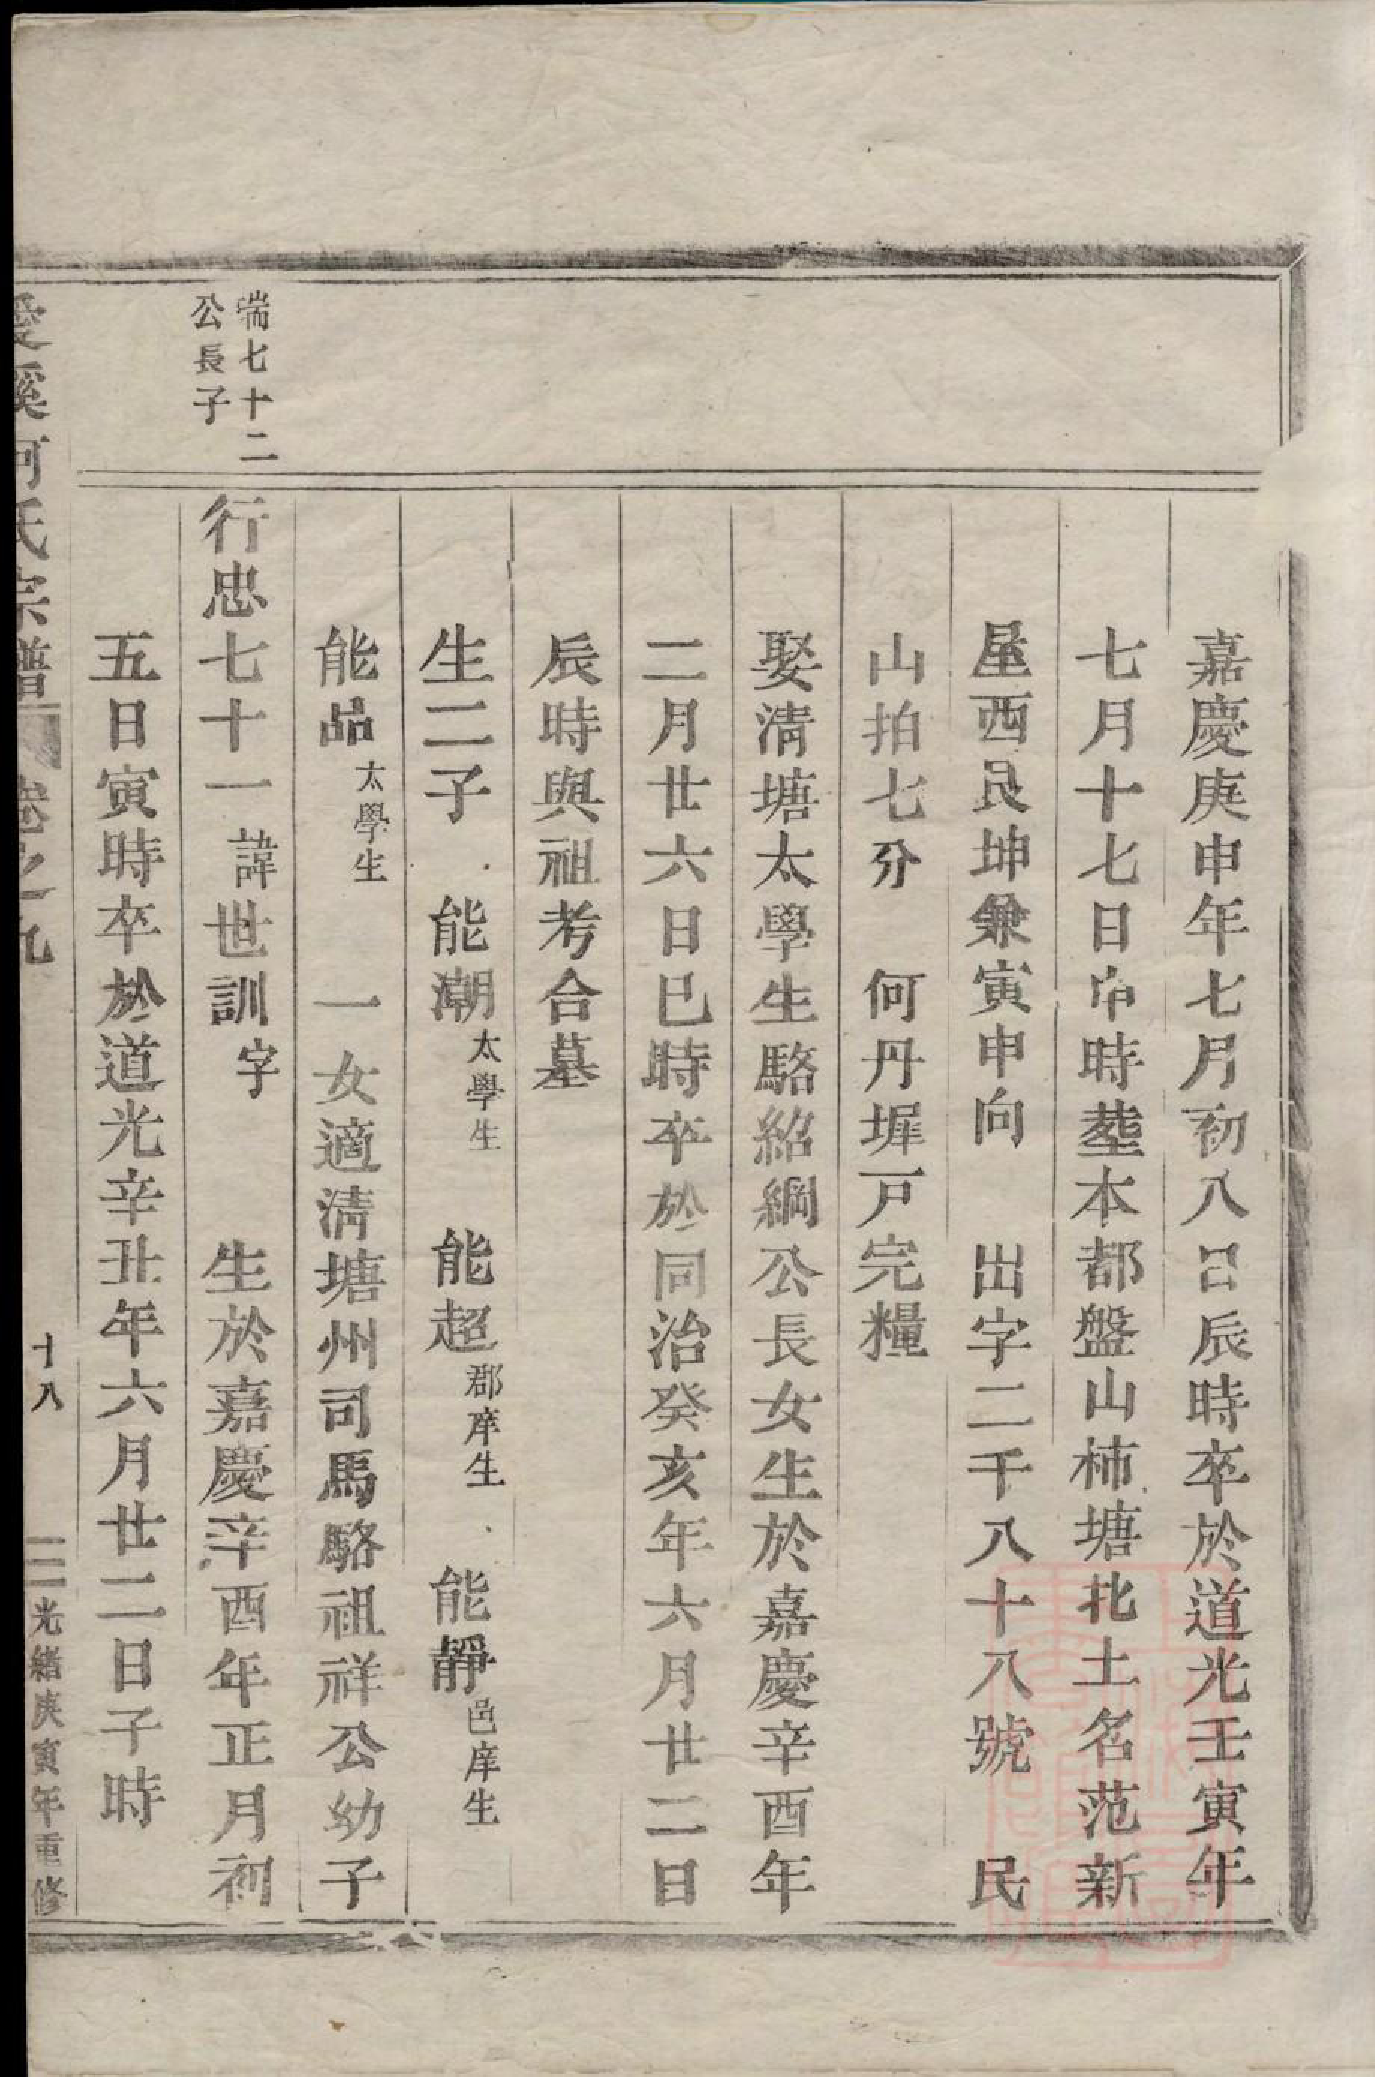 嘉慶庚申年七月初八日辰時卒於道光壬寅年
七月十七日申時塟本都盤山柿塘北土名范新
屋西艮坤兼寅申向　出字二千八十八號　民
山拍七分　何丹墀戸完糧
娶清塘太學生駱紹綱公長女生於嘉慶辛酉年
二月廿六日巳時卒於同治癸亥年六月廿二日
辰時與祖考合墓
生二子　能潮太學生　能超郡庠生　能靜邑庠生
能品太學生　一女適清塘州司馬駱祖祥公幼子
耑七十二
公長子
行忠七十一諱世訓字　生於嘉慶辛酉年正月初
五日寅時卒於道光辛丑年六月廿二日子時
溪何氏宗譜　卷之九　十八　光緒庚寅年重修